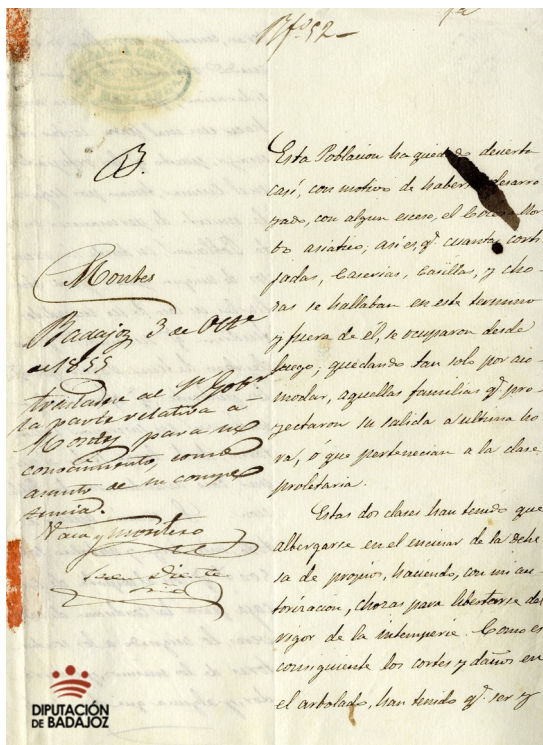 Nº 52
B.
Montes
Badajoz 3 de Octe
de 1855
trasladese al Sr Gobr
la parte relativa á
Montes para su
conocimiento, como
asunto de su compe
tencia.
Vaca y Montero
Esta Poblacion ha quedado decierta
casi, con motivo de haberse desarro
yado, con algun exceso, el
asiatico; asi es, q.e cuantas corti
jadas, Caserias, Casillas, y cho
zas se hallaban en este termino
y fuera de el, se ocuparon desde
luego; quedando tan solo por aco
modar, aquellas familias q.e pro
yectaron su salida a ultima ho
ra, ó que pertenecian a la clase
proletaria.
Estas dos clases han tenido que
albergarse en el encinar de la dehe
sa de propios, haciendo, con mi au
torizacion, chozas para libertarse del
rigor de la intemperie. Como es
consiguiente los cortes y daños en
el arbolado, han tenido q.e ser y
DIPUTACIÓN
DE BADAJOZ